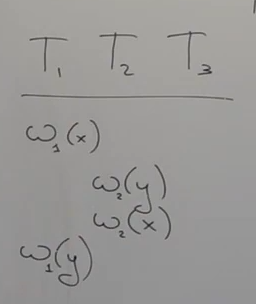 T₁ T₂ T₃
ω₁(x)
ω₂(y)
ω₂(x)
ω₁(y)